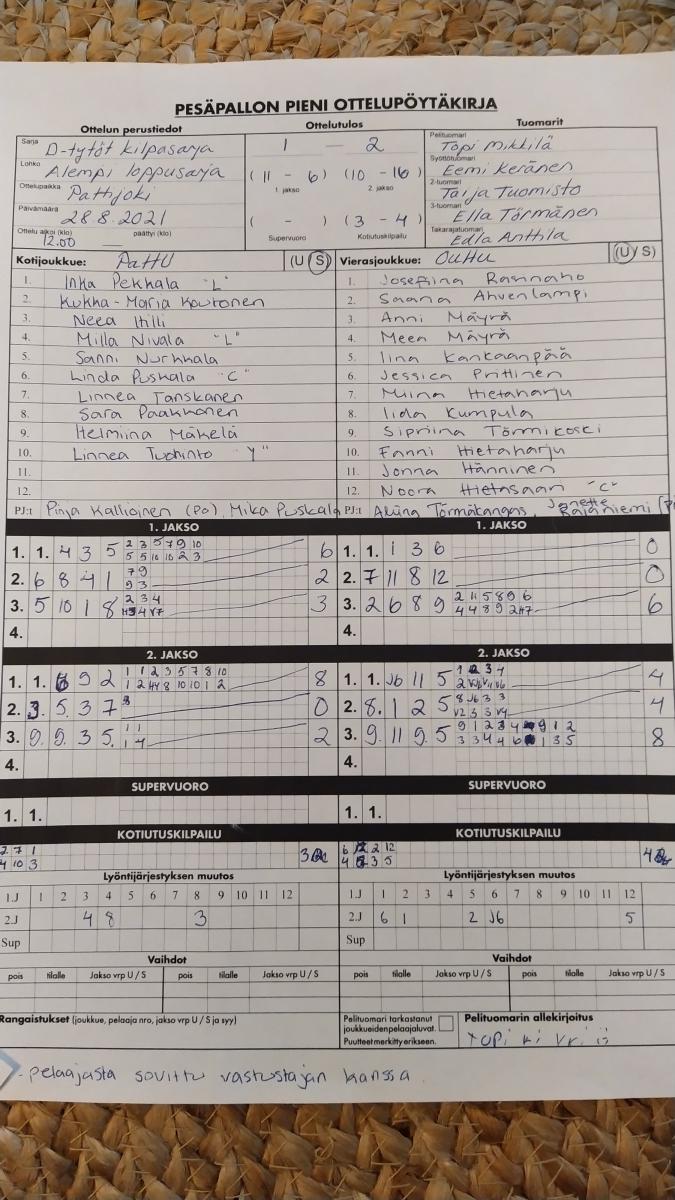 PESÄPALLON PIENI OTTELUPÖYTÄKIRJA
Ottelun perustiedot Ottelutulos Tuomarit
Sarja D-tytöt kilpasarja 1 - 2 Pelituomari Topi Mikkilä
Lohko Alempi loppusarja (11 - 6) (10 - 16) Syöttötuomari Eemi Keränen
Ottelupaikka Pattijoki 1. jakso 2. jakso 2-tuomari Taija Tuomisto
Päivämäärä 28.8.2021 ( - ) (3 - 4) 3-tuomari Ella Törmänen
Ottelu alkoi (klo) 12.00 päättyi (klo) Supervuoro Kotiutuskilpailu Takarajatuomari Edla Anttila
Kotijoukkue: PattU (U S) Vierasjoukkue: OuHu (U S)
1. Inka Pekkala "L" 1. Josefiina Rannaho
2. Kukka-Maria Koutonen 2. Saana Ahvenlampi
3. Neea Hilli 3. Anni Mäyrä
4. Milla Nivala "L" 4. Meea Mäyrä
5. Sanni Nurkkala 5. Iina Kankaanpää
6. Linda Puskala "C" 6. Jessica Prittinen
7. Linnea Tanskanen 7. Miina Hietaharju
8. Sara Paakkonen 8. Iida Kumpula
9. Helmiina Mäkelä 9. Sipriina Törmikoski
10. Linnea Tuohinto "Y" 10. Fanni Hietaharju
11. 11. Jonna Hänninen
12. 12. Noora Hietasaari "C"
PJ:t Pinja Kallioinen (Po), Mika Puskala PJ:t Törmäkangas, Janette Rajaniemi
1. JAKSO 1. JAKSO
1. 1. 4 3 5 2 3 5 7 9 10 6 1. 1. 1 3 6 0
5 5 10 10 2 3
2. 6 8 4 1 7 9 2 2. 7 11 8 12 0
9 3
3. 5 10 1 8 2 3 4 3 3. 2 6 8 9 2 11 5 8 9 6 6
4 4 8 9 2
4. 4.
2. JAKSO 2. JAKSO
1. 1. 9 2 1 1 2 3 5 7 8 10 8 1. 1. J6 11 5 4
8 10 10 1 2
2. 3. 5. 3 7 0 2. 8. 1 2 5 8 J6 3 3 4
V2 3 3 V4
3. 9. 9. 3 5. 1 1 2 3. 9. 11 9. 5 9 1 2 3 4 9 1 2 8
1 4 3 3 4 4 6 1 3 5
4. 4.
SUPERVUORO SUPERVUORO
1. 1. 1. 1.
KOTIUTUSKILPAILU KOTIUTUSKILPAILU
2 7 1 3 6 2 12 4
4 10 3 4 3 5
Lyöntijärjestyksen muutos Lyöntijärjestyksen muutos
1.J 1 2 3 4 5 6 7 8 9 10 11 12 1.J 1 2 3 4 5 6 7 8 9 10 11 12
2.J 4 8 3 2.J 6 1 2 J6 5
Sup Sup
Vaihdot Vaihdot
pois tilalle Jakso vrp U / S pois tilalle Jakso vrp U / S pois tilalle Jakso vrp U / S pois tilalle Jakso vrp U / S
Rangaistukset (joukkue, pelaaja nro, jakso vrp U / S ja syy) Pelituomari tarkastanut joukkueiden pelaajaluvat. Puutteet merkitty erikseen. Pelituomarin allekirjoitus
- pelaajasta sovittu vastustajan kanssa.